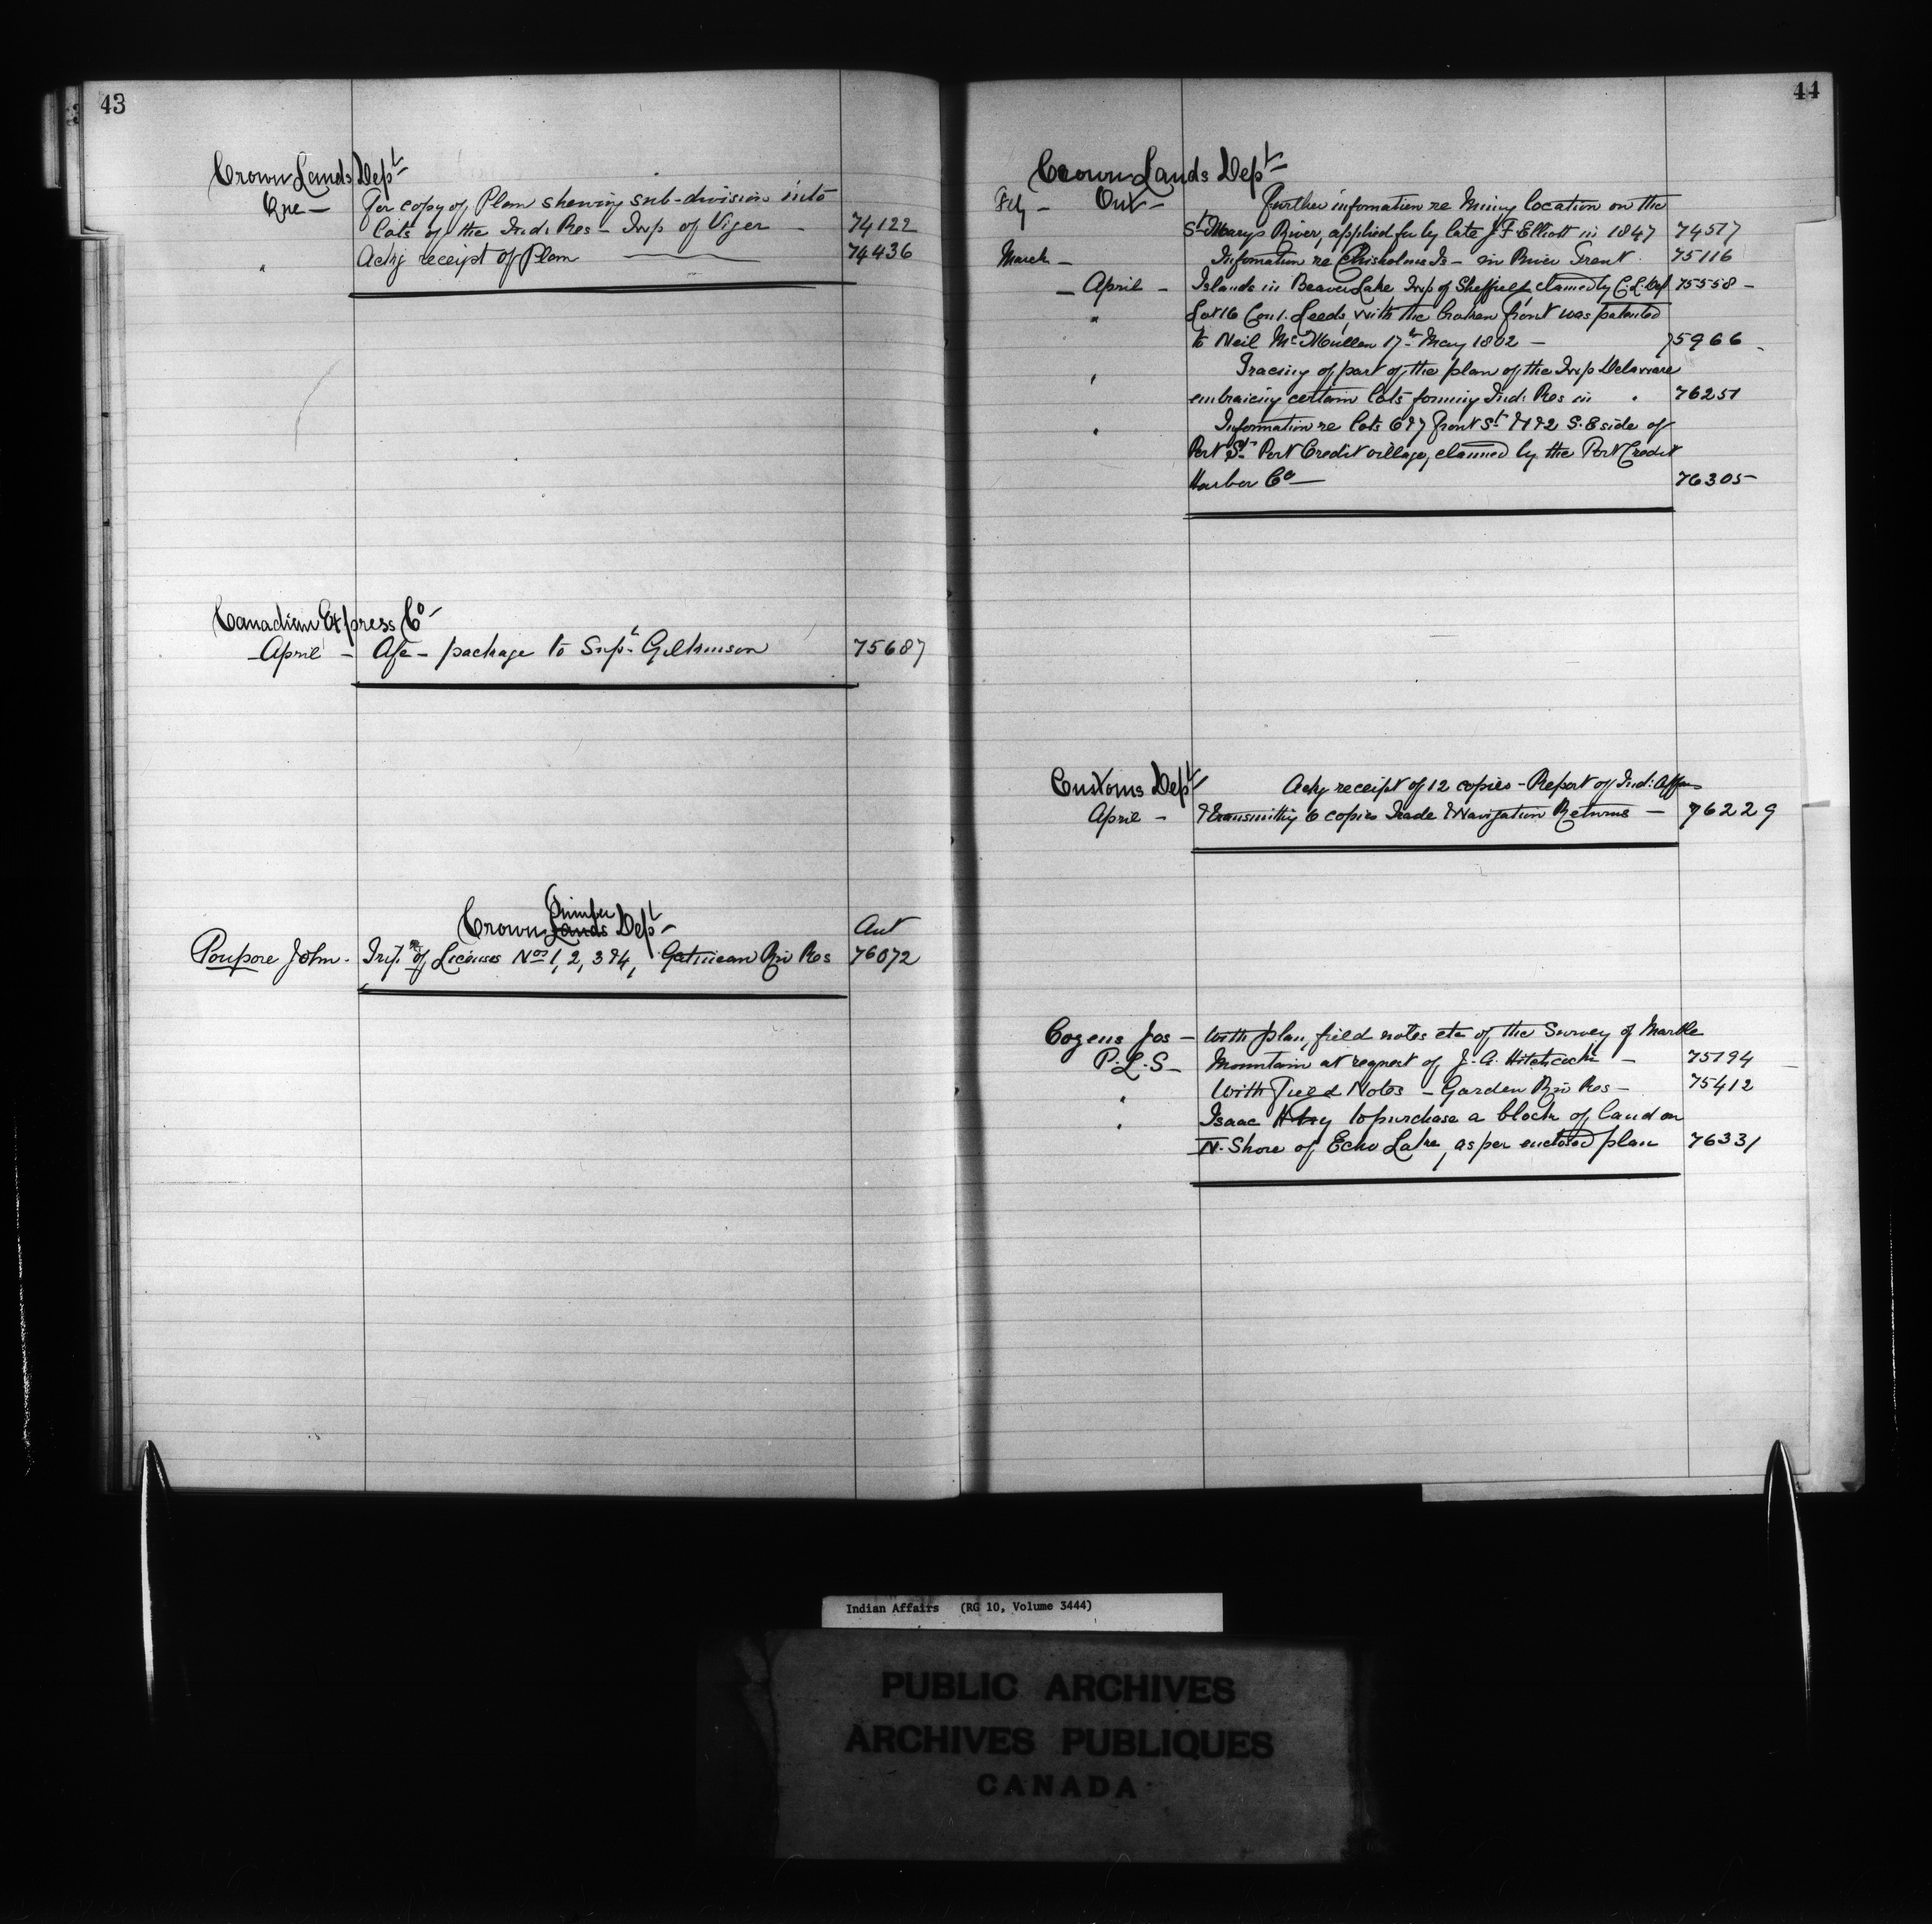 43
Crown Lands Dept
Que — For copy of Plan shewing sub-division into
lots of the Ind: Res — Twp of Viger — 74122
" Ackg receipt of Plan — 74436
Canadian Express Co
April — A/c — package to Supt Gilkinson 75687
Crown Timber Lands Dept
Poupore John. of Licenses Nos 1, 2, 3 & 4, Gatineau Riv Res 76072
44
Crown Lands Dept
Feby — Ont — Further infomation re Mining location on the
St Marys River, applied for by late J F Elliott in 1847 74517
March — Infomation re Chisholms Is — in River Trent 75116
— April — Islands in Beaver Lake Twp of Sheffield, claimed by C. L. Dep 75558 —
" Lot 16 Con 1. Leeds, with the broken front was patented
to Neil McMullen 17th May 1802 — 75966
" Tracing of part of the plan of the Twp Delaware
embracing certain lots forming Ind: Res in " 76251
" Information re lots 6 & 7 front St & 1 & 2 S. E side of
Port St Port Credit village, claimed by the Port Credit
Harbor Co — 76305
Customs Dept Ackg receipt of 12 copies — Report of Ind: Affairs
April — & transmitting 6 copies Trade & Navigation Returns — 76229
Cozens Jos — With plan, field notes etc of the Survey of Marble
P. L. S — Mountain at request of J. A. Hitchcock — 75194
" With Field Notes — Garden Riv Res — 75412
" Isaac to purchase a block of land on
N. Shore of Echo Lake, as per enclosed plan 76331
Indian Affairs (RG 10, Volume 3444)
PUBLIC ARCHIVES
ARCHIVES PUBLIQUES
CANADA